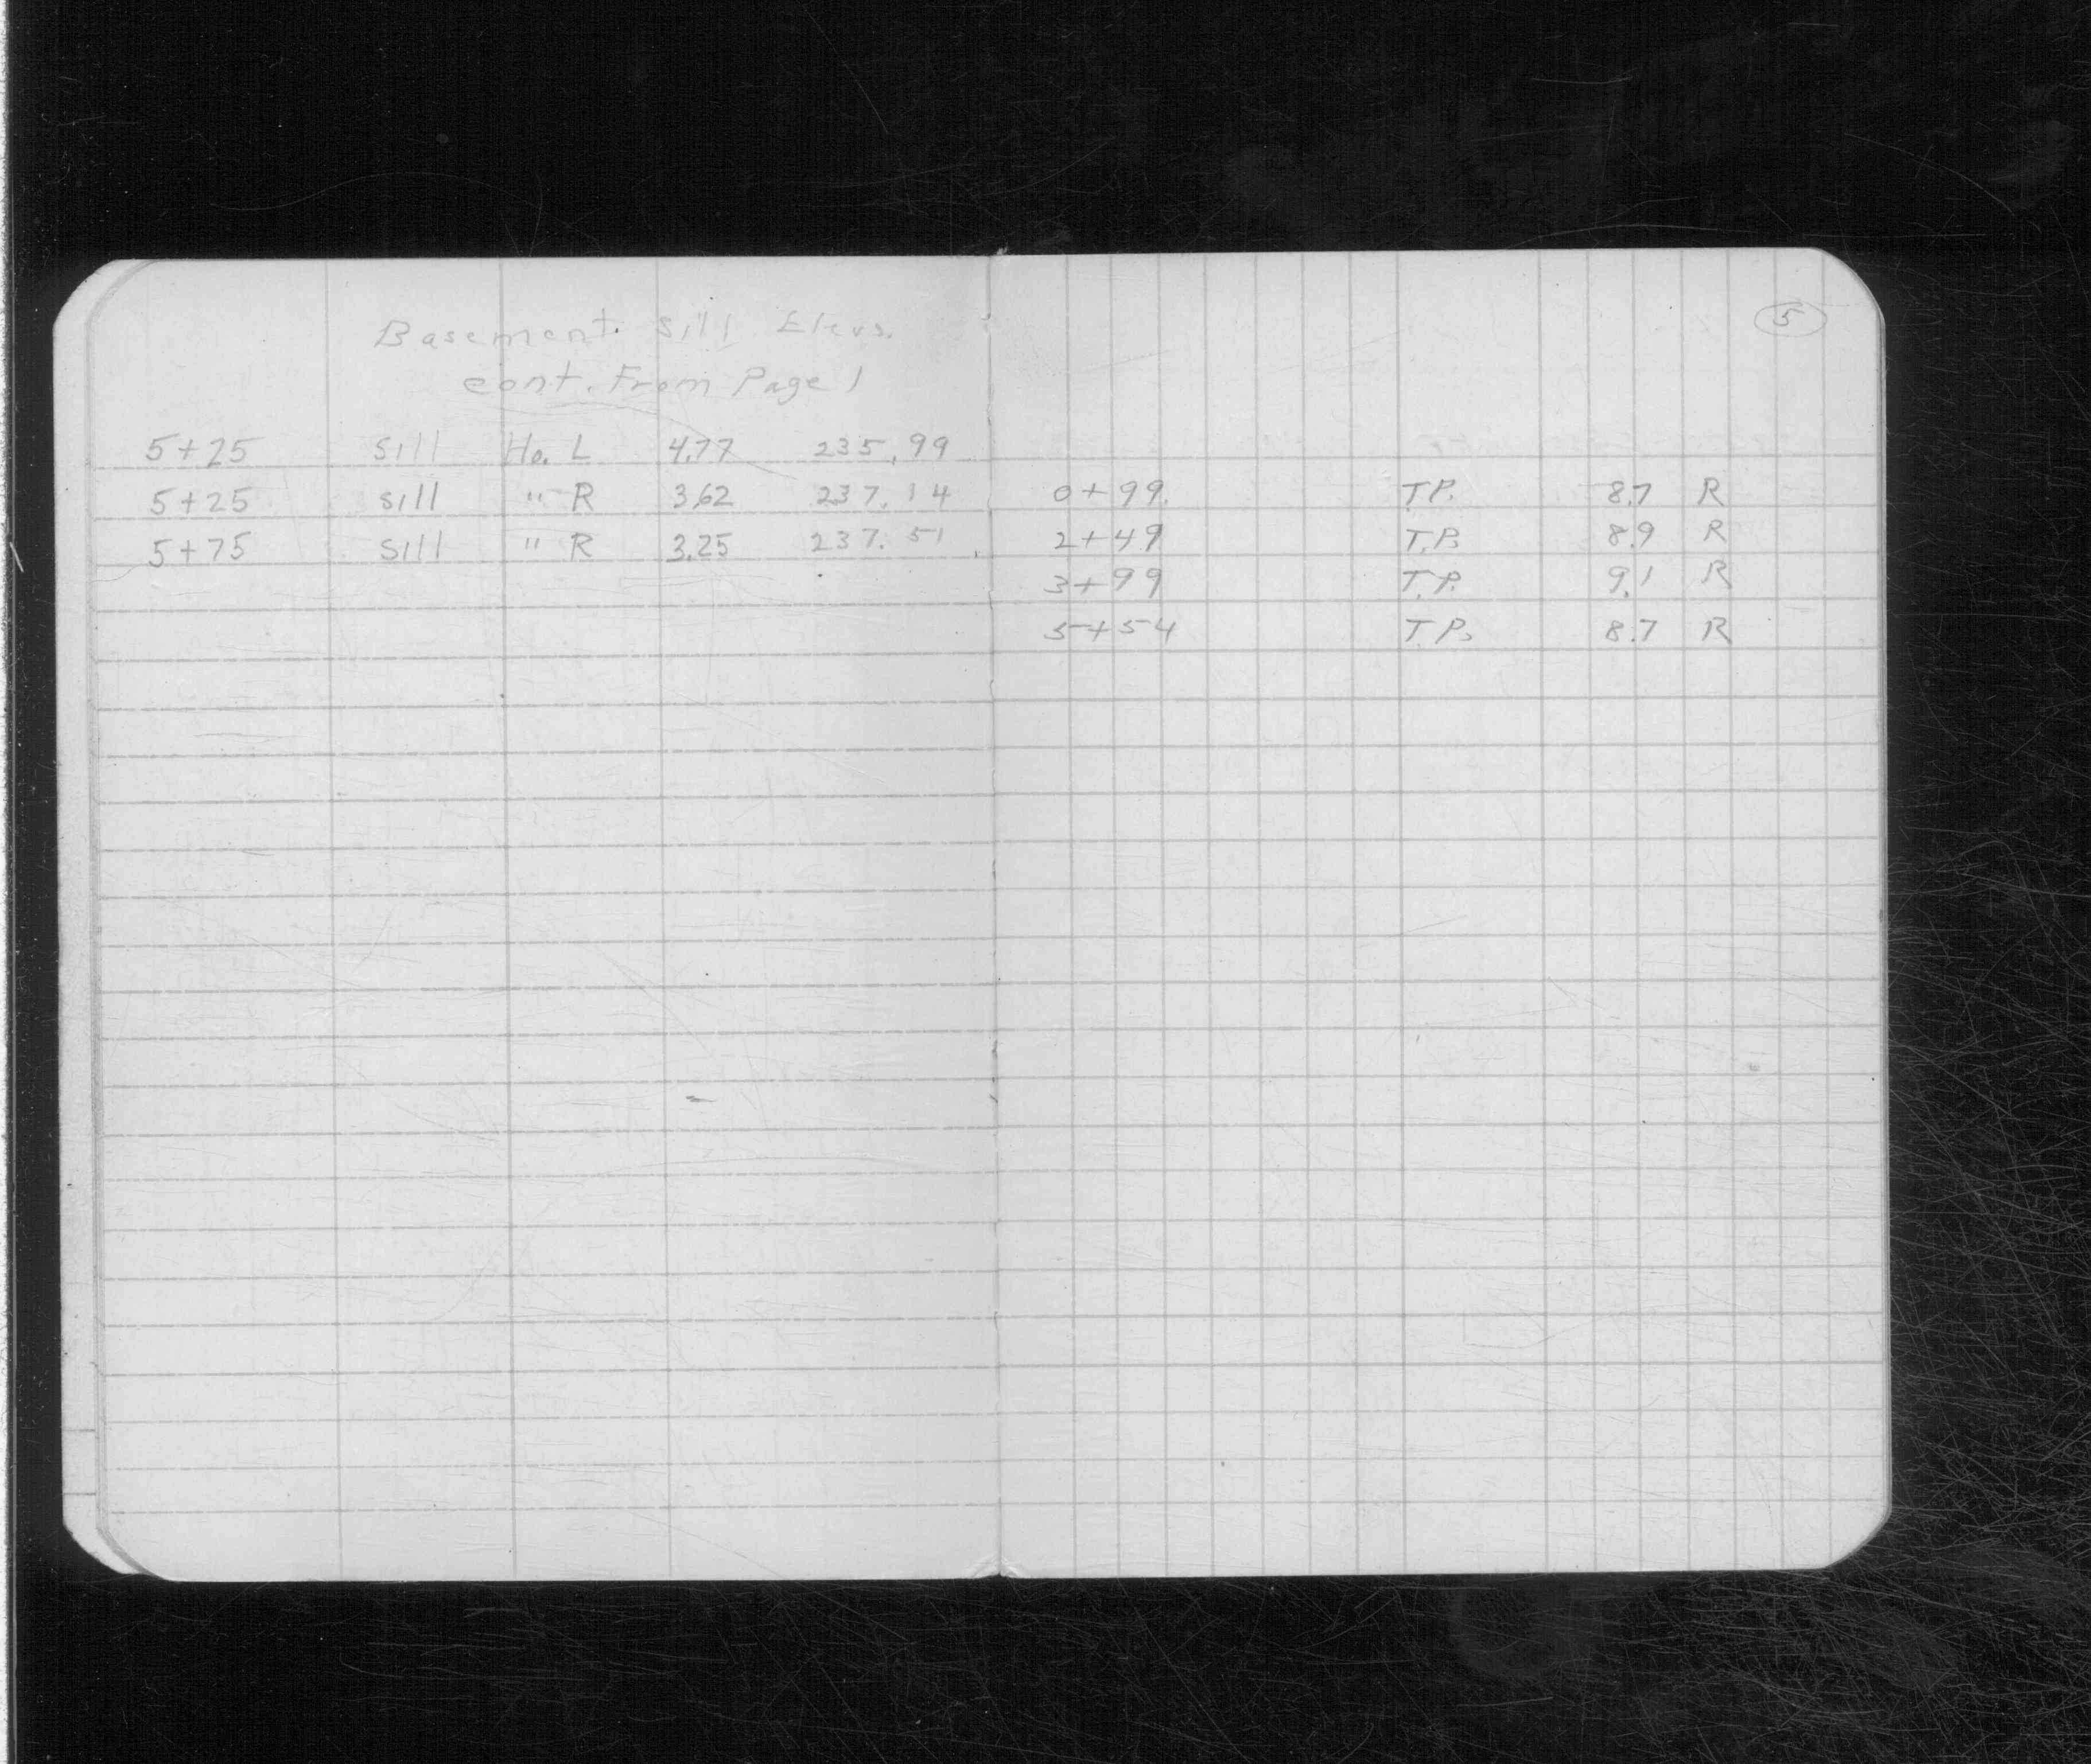 Basement Sill Elevs.
cont. From Page 1
5+25 sill Ho. L 4.77 235.99
5+25 sill " R 3.62 237.14
5+75 sill " R 3.25 237.51
5
0+99 T.P. 8.7 R
2+49 T.P. 8.9 R
3+99 T.P. 9.1 R
5+54 T.P. 8.7 R